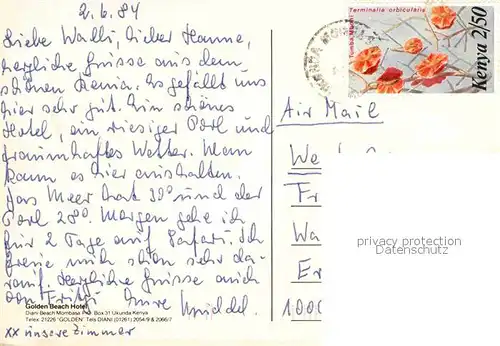 2.6.84
Liebe Walli, lieber Hanne,
herzliche Grüsse aus dem
schönen Kenia. Es gefällt uns
hier sehr gut. Ein schönes
Hotel, ein riesiger Pool und
traumhaftes Wetter. Man
kann es hier aushalten.
Das Meer hat 30° und der
Pool 28°. Morgen gehe ich
für 2 Tage auf Safari. Ich
freue mich schon sehr da-
rauf. Herzliche Grüsse auch
von Fritz. Eure
xx unsere Zimmer
Golden Beach Hotel
Diani Beach Mombasa P.O. Box 31 Ukunda Kenya
Telex: 21226 "GOLDEN" Tels DIANI (01261) 2054/9 & 2066/7
Terminalia orbicularis
Kenya 2/50
Air Mail
We
Fr
Wa
Er
1000
privacy protection
Datenschutz